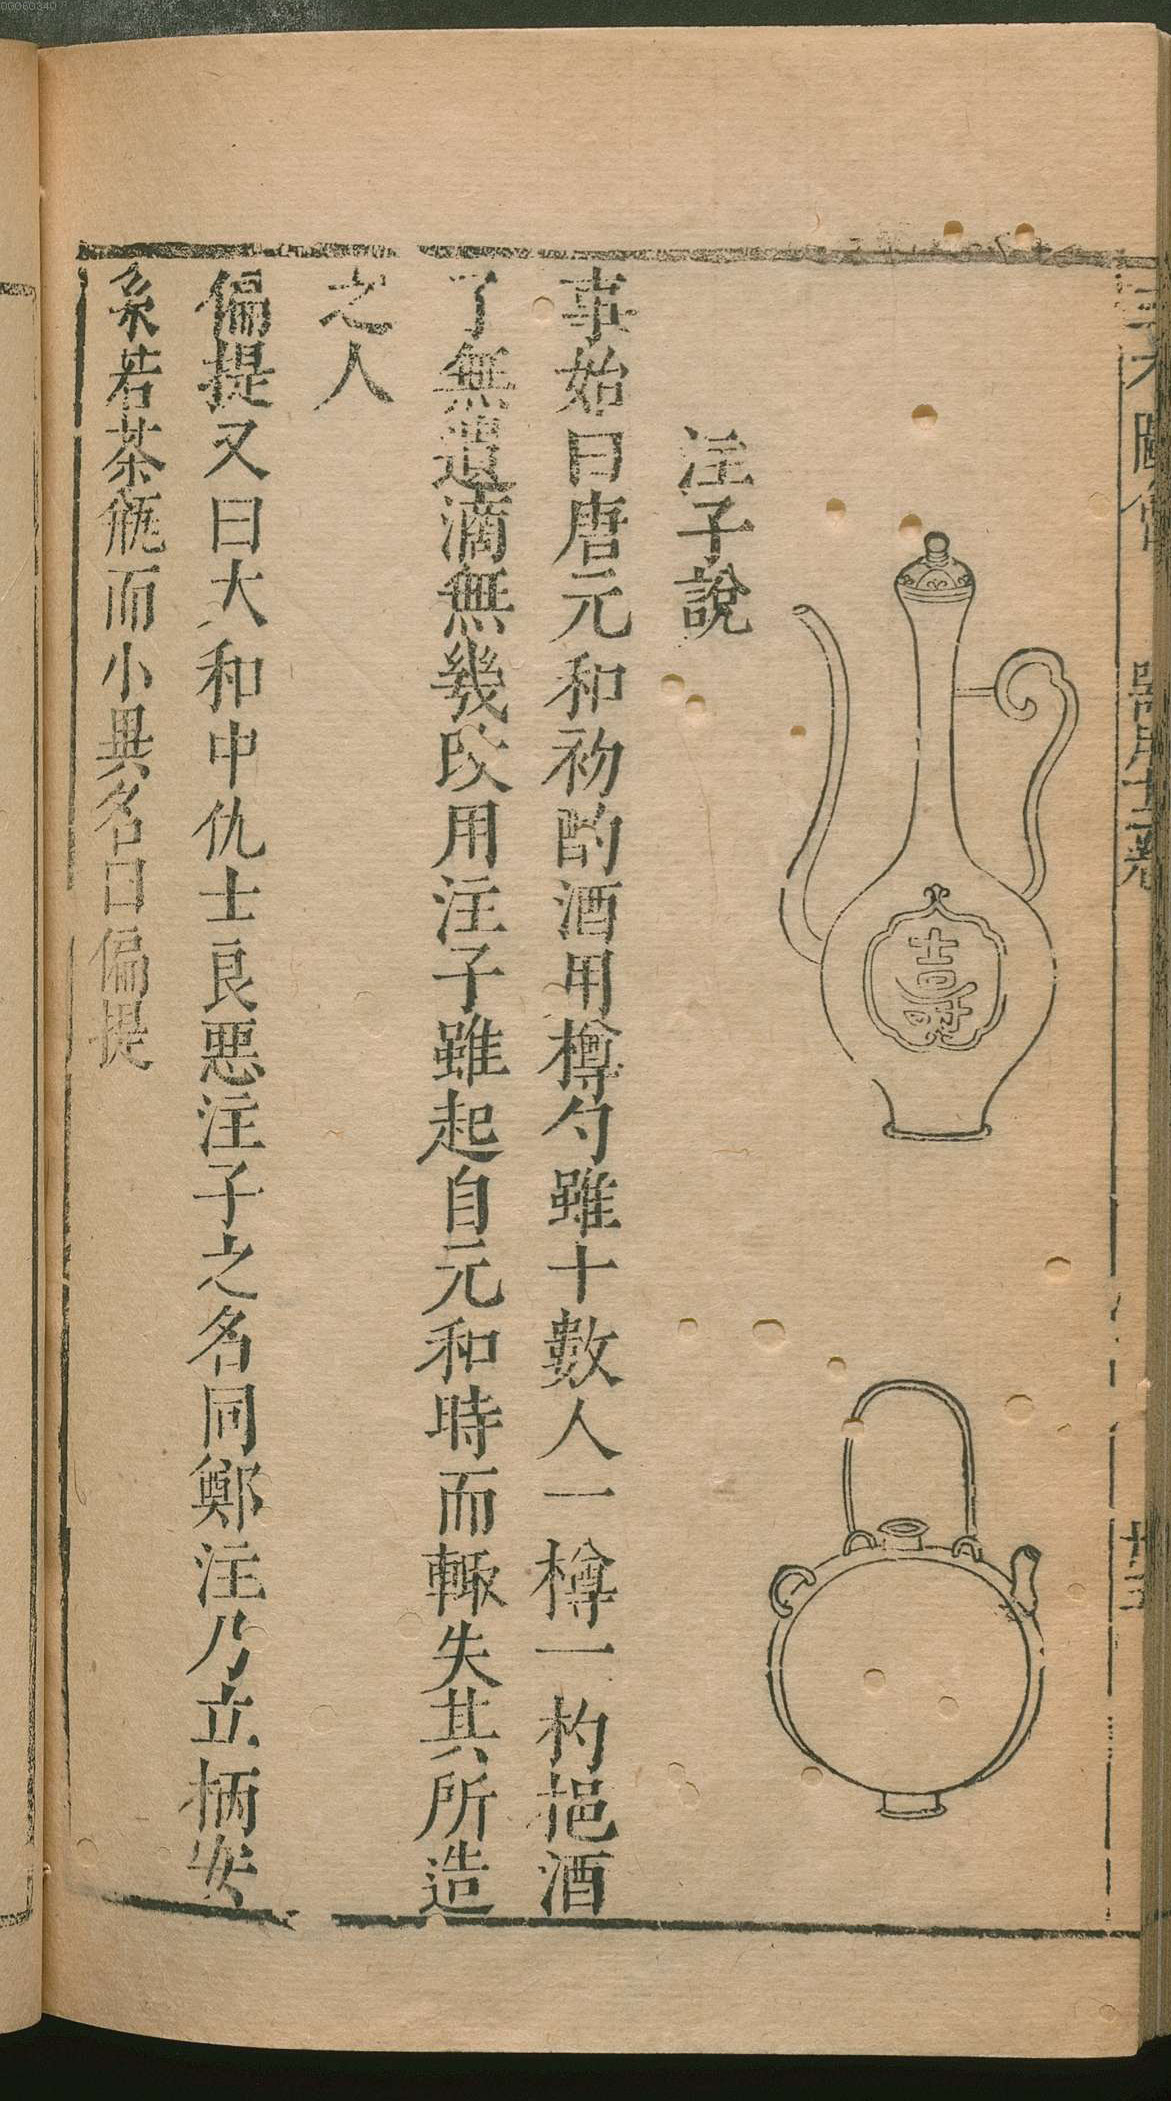 00060340
三才圖會
器用十二卷
壽
注子說
事始曰唐元和初酌酒用樽勺雖十數人一樽一杓挹酒
了無遺滴無幾改用注子雖起自元和時而輙失其所造
之人
偏提又曰大和中仇士良惡注子之名同鄭注乃立柄安
系若茶瓶而小異名曰偏提